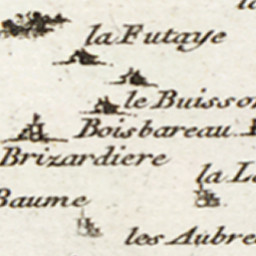 la Futaye
le Buisson
Boisbareau
Brizardiere
la
Baume
les Aubre